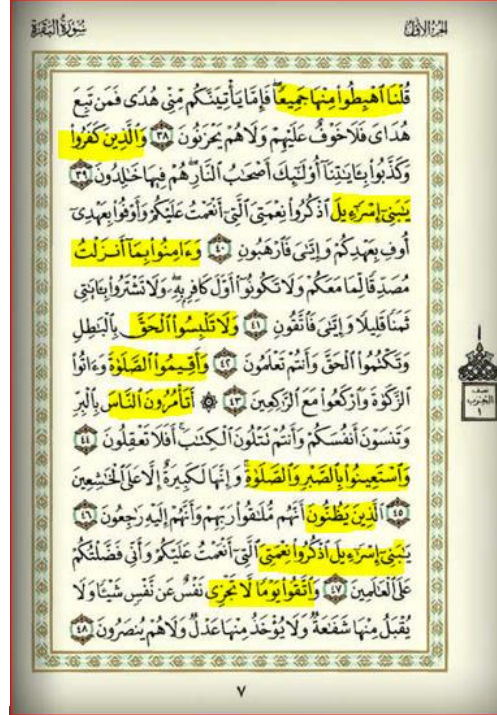 سُورَةُ البَقَرَةِ
الجزء الأول
قُلْنَا ٱهْبِطُوا۟ مِنْهَا جَمِيعًۭا فَإِمَّا يَأْتِيَنَّكُم مِّنِّى هُدًۭى فَمَن تَبِعَ
هُدَاىَ فَلَا خَوْفٌ عَلَيْهِمْ وَلَا هُمْ يَحْزَنُونَ ٣٨ وَٱلَّذِينَ كَفَرُوا۟
وَكَذَّبُوا۟ بِـَٔايَـٰتِنَآ أُو۟لَـٰٓئِكَ أَصْحَـٰبُ ٱلنَّارِ ۖ هُمْ فِيهَا خَـٰلِدُونَ ٣٩
يَـٰبَنِىٓ إِسْرَٰٓءِيلَ ٱذْكُرُوا۟ نِعْمَتِىَ ٱلَّتِىٓ أَنْعَمْتُ عَلَيْكُمْ وَأَوْفُوا۟ بِعَهْدِىٓ
أُوفِ بِعَهْدِكُمْ وَإِيَّـٰىَ فَٱرْهَبُونِ ٤٠ وَءَامِنُوا۟ بِمَآ أَنزَلْتُ
مُصَدِّقًۭا لِّمَا مَعَكُمْ وَلَا تَكُونُوٓا۟ أَوَّلَ كَافِرٍۭ بِهِۦ ۖ وَلَا تَشْتَرُوا۟ بِـَٔايَـٰتِى
ثَمَنًۭا قَلِيلًۭا وَإِيَّـٰىَ فَٱتَّقُونِ ٤١ وَلَا تَلْبِسُوا۟ ٱلْحَقَّ بِٱلْبَـٰطِلِ
وَتَكْتُمُوا۟ ٱلْحَقَّ وَأَنتُمْ تَعْلَمُونَ ٤٢ وَأَقِيمُوا۟ ٱلصَّلَوٰةَ وَءَاتُوا۟
ٱلزَّكَوٰةَ وَٱرْكَعُوا۟ مَعَ ٱلرَّٰكِعِينَ ٤٣ ۞ أَتَأْمُرُونَ ٱلنَّاسَ بِٱلْبِرِّ
وَتَنسَوْنَ أَنفُسَكُمْ وَأَنتُمْ تَتْلُونَ ٱلْكِتَـٰبَ ۚ أَفَلَا تَعْقِلُونَ ٤٤
وَٱسْتَعِينُوا۟ بِٱلصَّبْرِ وَٱلصَّلَوٰةِ ۚ وَإِنَّهَا لَكَبِيرَةٌ إِلَّا عَلَى ٱلْخَـٰشِعِينَ
٤٥ ٱلَّذِينَ يَظُنُّونَ أَنَّهُم مُّلَـٰقُوا۟ رَبِّهِمْ وَأَنَّهُمْ إِلَيْهِ رَٰجِعُونَ ٤٦
يَـٰبَنِىٓ إِسْرَٰٓءِيلَ ٱذْكُرُوا۟ نِعْمَتِىَ ٱلَّتِىٓ أَنْعَمْتُ عَلَيْكُمْ وَأَنِّى فَضَّلْتُكُمْ
عَلَى ٱلْعَـٰلَمِينَ ٤٧ وَٱتَّقُوا۟ يَوْمًۭا لَّا تَجْزِى نَفْسٌ عَن نَّفْسٍۢ شَيْـًۭٔا وَلَا
يُقْبَلُ مِنْهَا شَفَـٰعَةٌۭ وَلَا يُؤْخَذُ مِنْهَا عَدْلٌۭ وَلَا هُمْ يُنصَرُونَ ٤٨
نصف
الحزب
١
٧